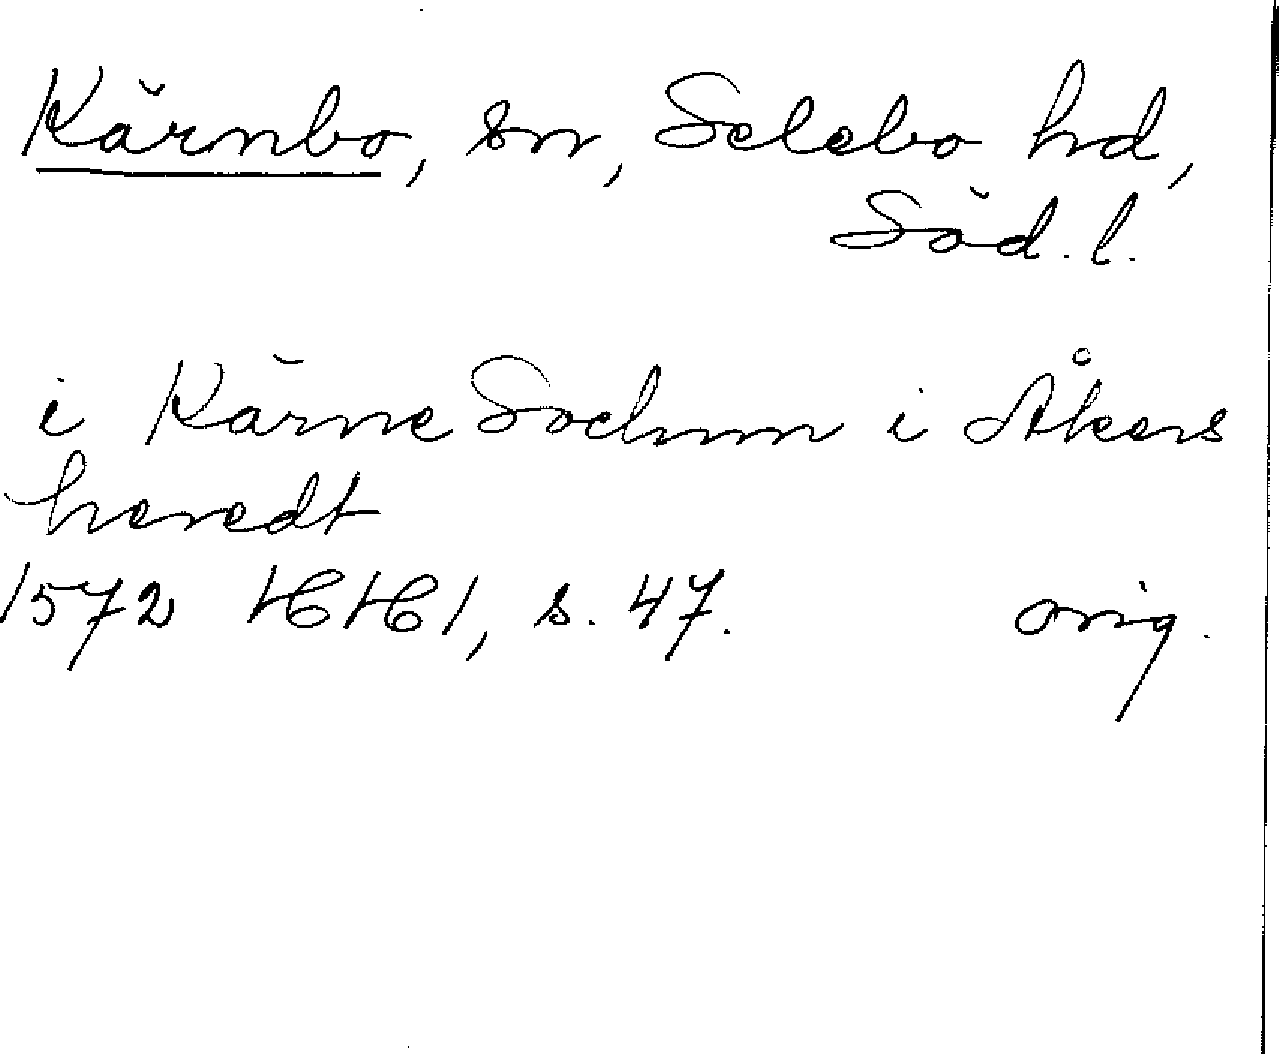 Kärnbo, sn, Selebo hd,
Söd. l.
i Kärne Sochnn i Åkers
heredt
1572 HH1, s. 47. orig.